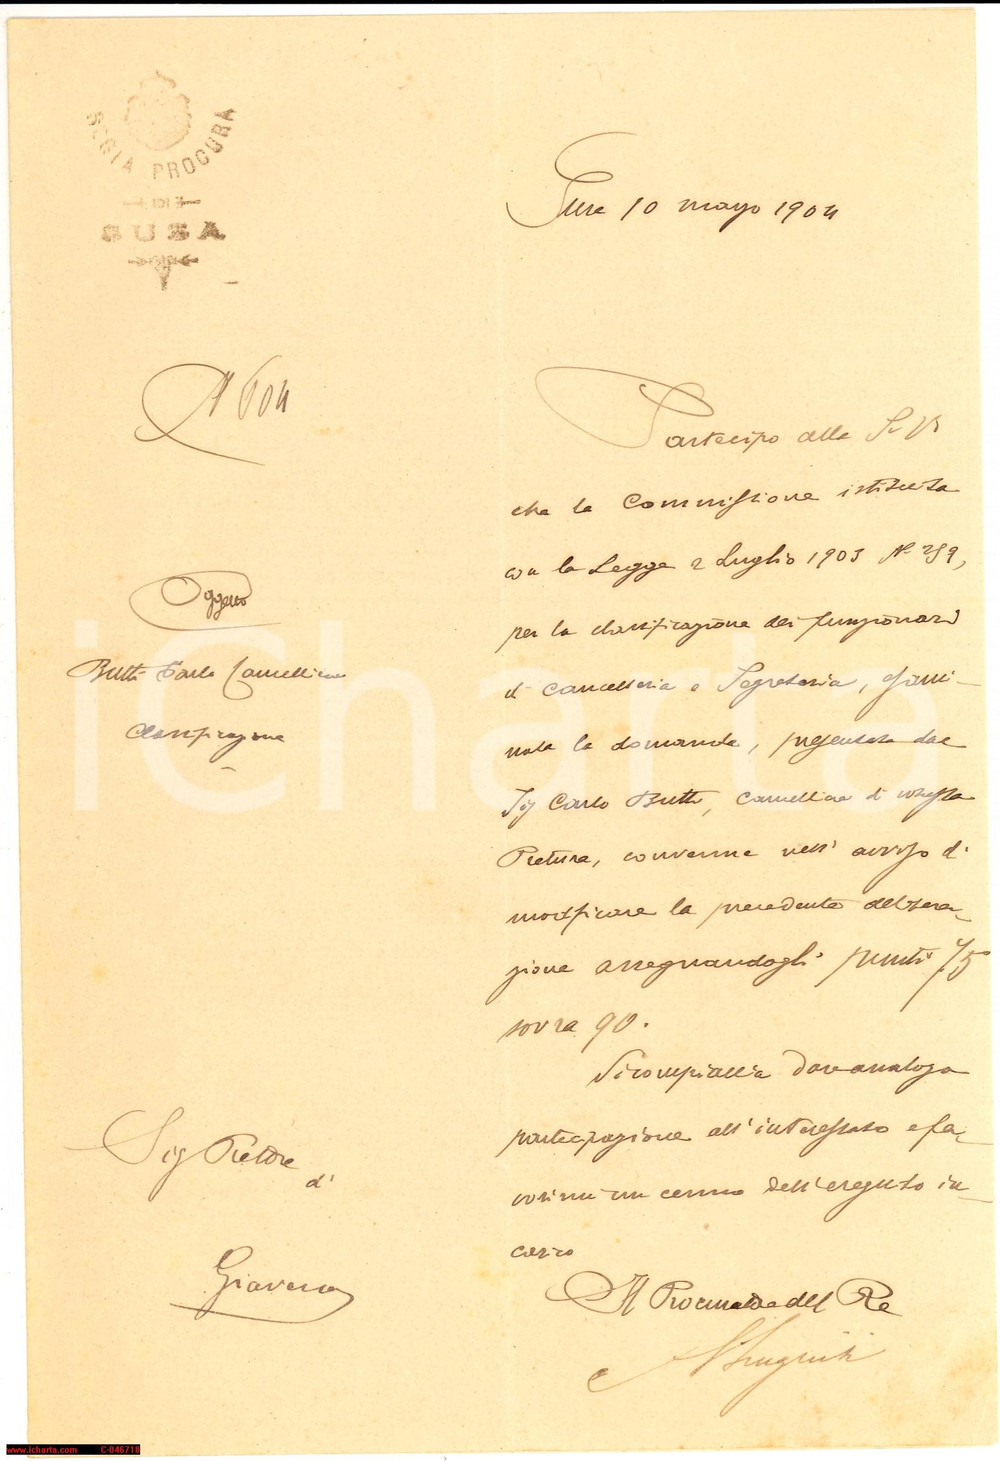 REGIA PROCURA
DI
SUSA
Susa 10 maggio 1904
N 604
Oggetto
Butti Carlo Cancelliere
Classificazione
Partecipo alla S. V.
che la Commissione istituita
con la Legge 2 Luglio 1903 N. 259,
per la classificazione dei funzionari
di cancelleria e Segreteria, esami-
nata la domanda, presentata dal
Sig Carlo Butti, Cancelliere di codesta
Pretura, convenne nell' avviso di
modificare la precedente delibera-
zione assegnandogli punti 75
sovra 90.
Si compiaccia dare analoga
partecipazione all'interessato e fa-
vorirmi un cenno dell'eseguito in-
carico
Sig Pretore
di
Giaveno
Il Procuratore del Re
iCharta
www.icharta.com C-046718